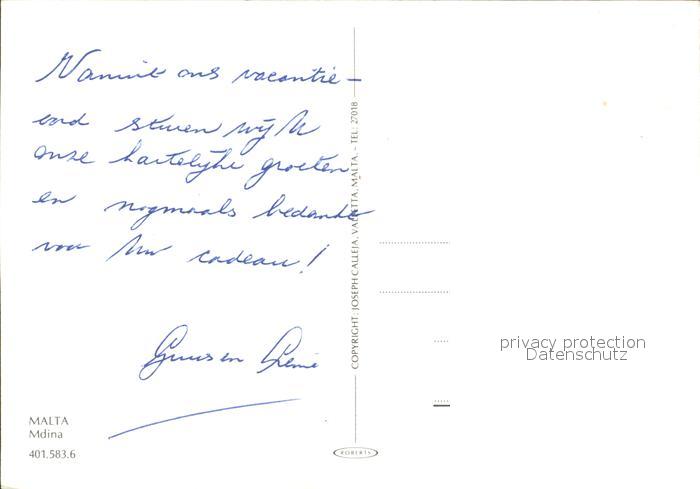 Vanuit ons vacantie-
oord sturen wij U
onze hartelijke groeten
en nogmaals bedankt
voor Uw cadeau!
Guus en
COPYRIGHT: JOSEPH CALLEJA, VALLETTA, MALTA. - TEL: 27018
privacy protection
Datenschutz
MALTA
Mdina
401.583.6
ROBERTS